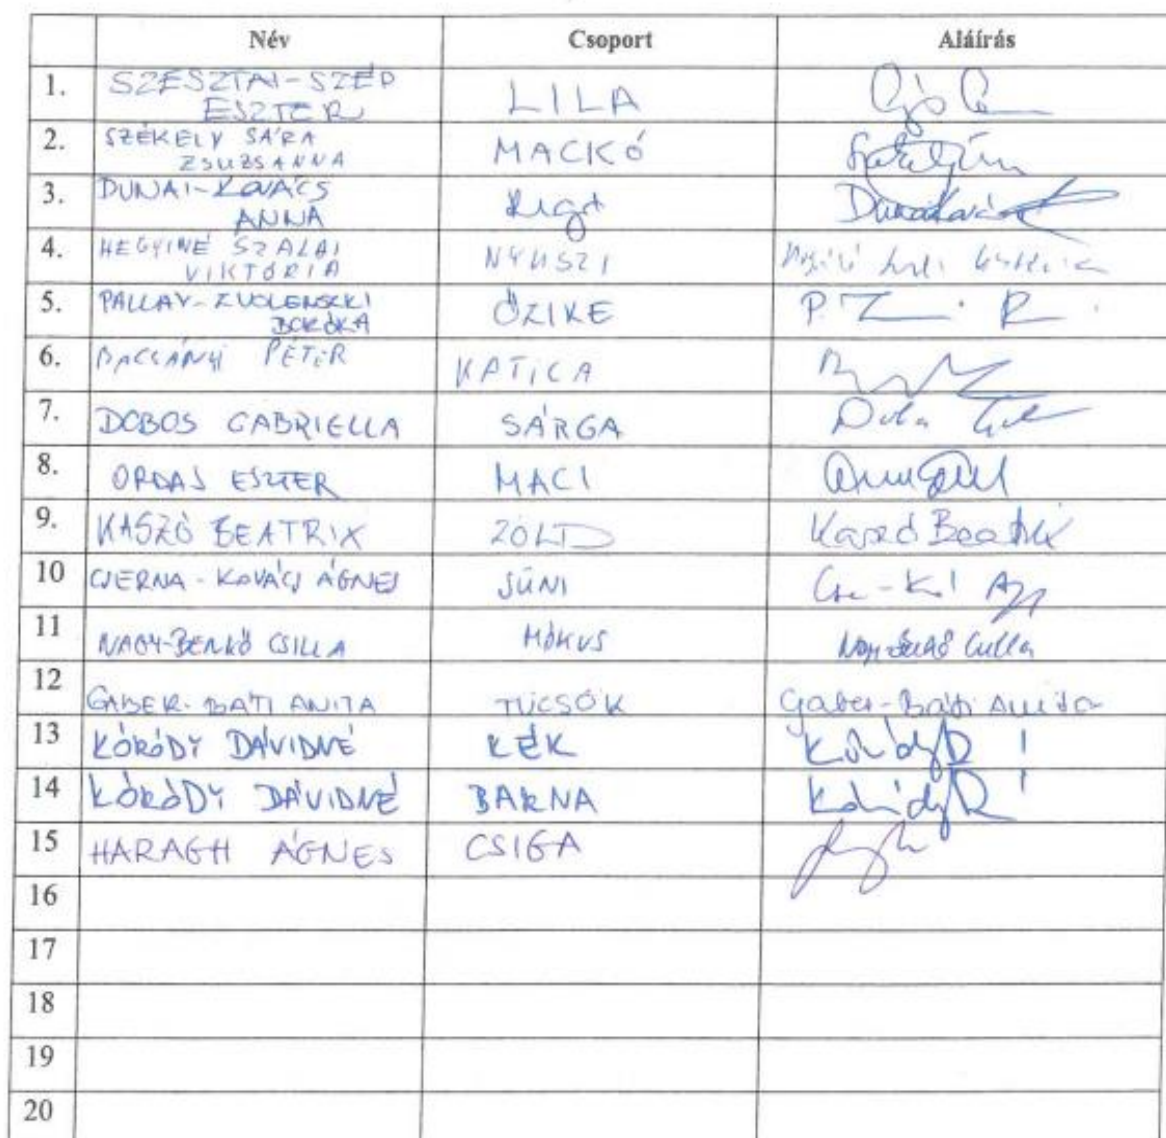 Név Csoport Aláírás
1. SZESZTAI-SZÉP
ESZTER LILA
2. SZÉKELY SÁRA
ZSUZSANNA MACKÓ
3. DUNAI-KOVÁCS
ANNA
4. HEGYINÉ SZALAI
VIKTÓRIA NYUSZI
5. PALLAY-ZVOLENSZKI
BORÓKA ŐZIKE P. Z R.
6. BACSÁNYI PÉTER KATICA
7. DOBOS GABRIELLA SÁRGA
8. ORDAS ESZTER MACI
9. KASZÓ BEATRIX ZÖLD Kaszó Beatrix
10 CSERNA-KOVÁCS ÁGNES SÜNI
11 NAGY-BENKŐ CSILLA MÓKUS Nagy-Benkő Csilla
12 GABER-BÁTI ANITA TÜCSÖK Gaber-Báti Anita
13 KÓRÓDY DÁVIDNÉ KÉK
14 KÓRÓDY DÁVIDNÉ BARNA
15 HARAGH ÁGNES CSIGA
16
17
18
19
20